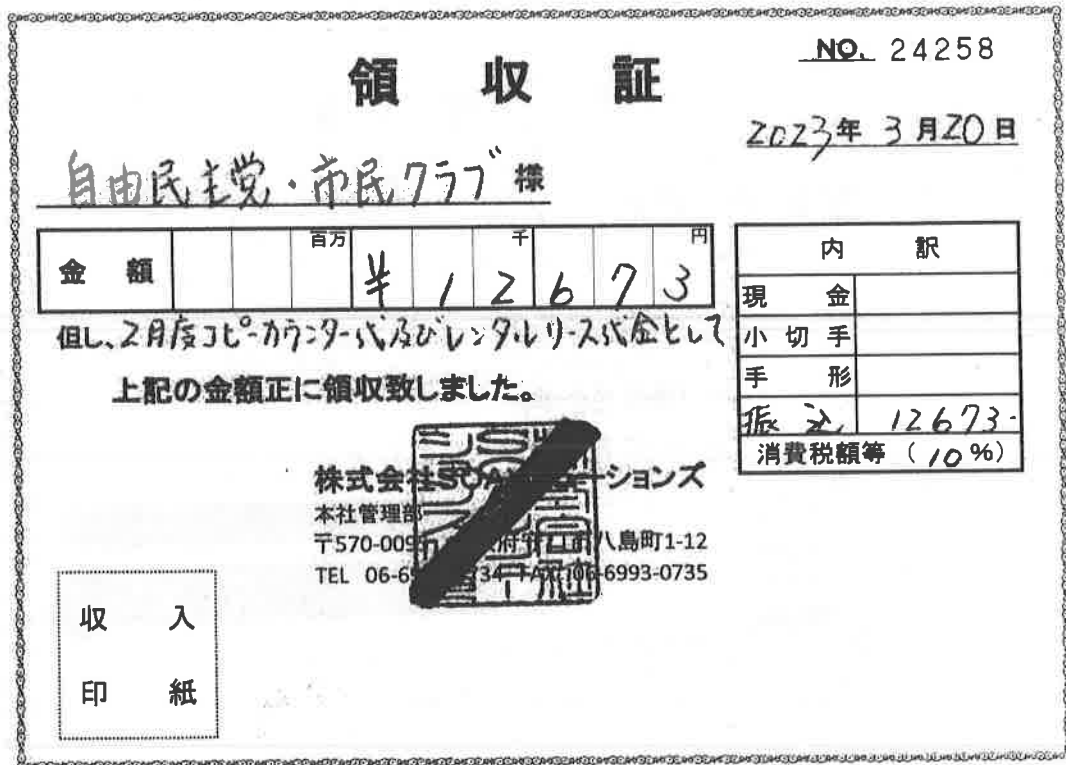 NO. 24258
領収証
2023年 3月20日
自由民主党・市民クラブ 様
百万 千 円
金額 ¥12673
但し、2月度コピーカウンター代及びレンタルリース代金として
上記の金額正に領収致しました。
内訳
現金
小切手
手形
振込 12673-
消費税額等 (10%)
株式会社 ーションズ
本社管理部
〒570-009 八島町1-12
TEL 06-6 34 FAX 06-6993-0735
収入
印紙